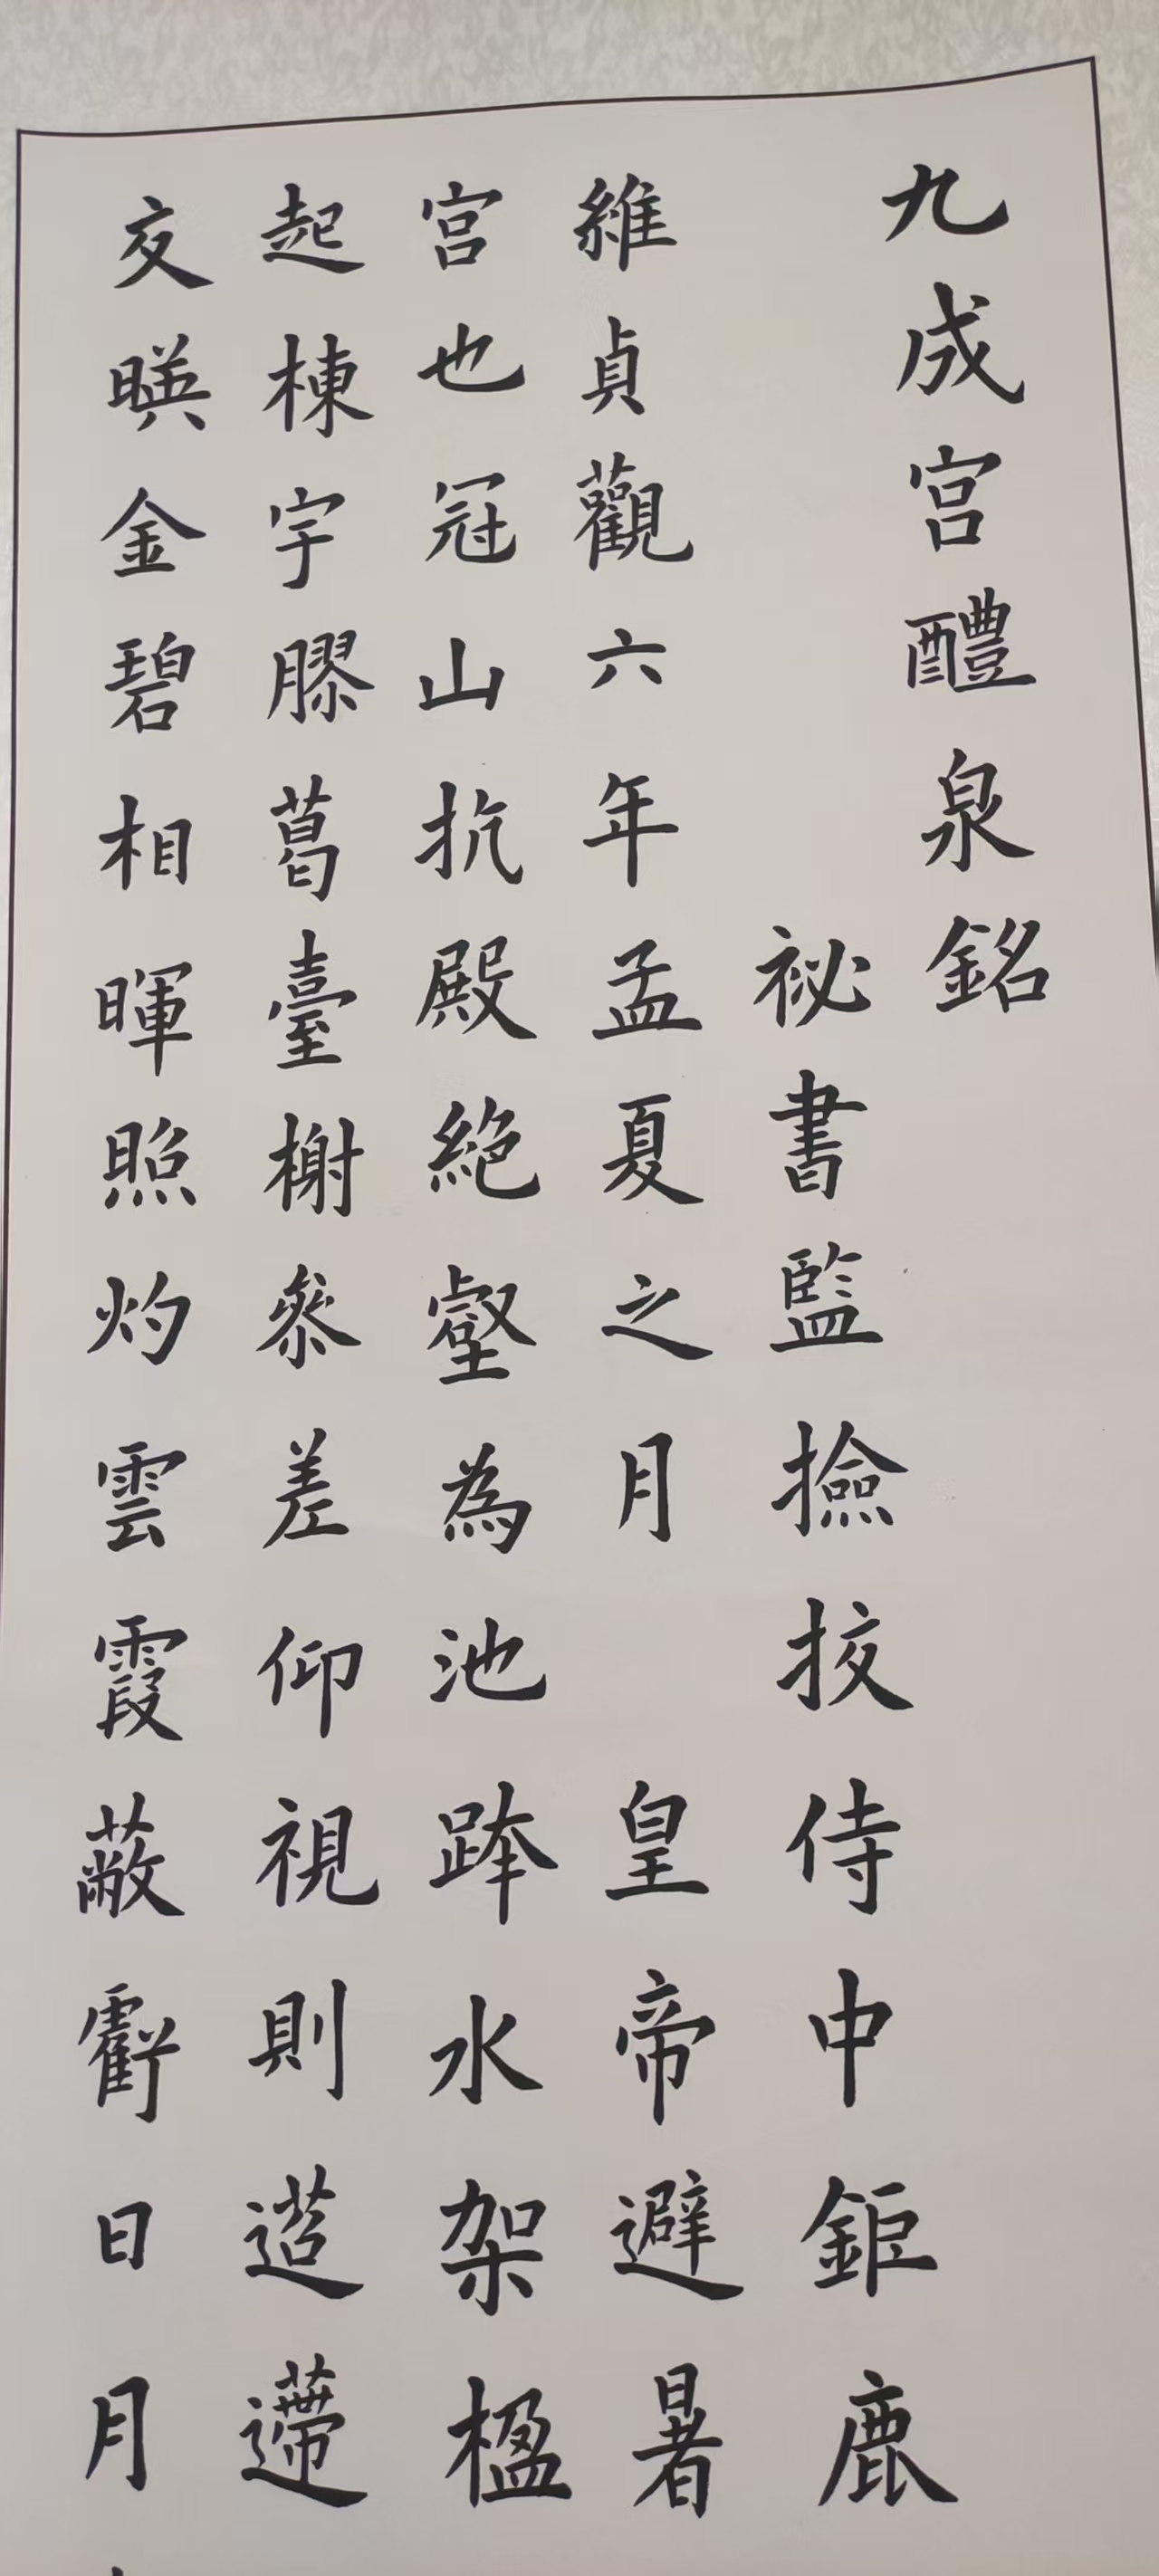 九成宫醴泉銘
祕書監撿挍侍中鉅鹿
維貞觀六年孟夏之月 皇帝避暑
宫也冠山抗殿絶壑為池跨水架楹
起棟宇膠葛臺榭參差仰視則迢遰
交暎金碧相暉照灼雲霞蔽虧日月